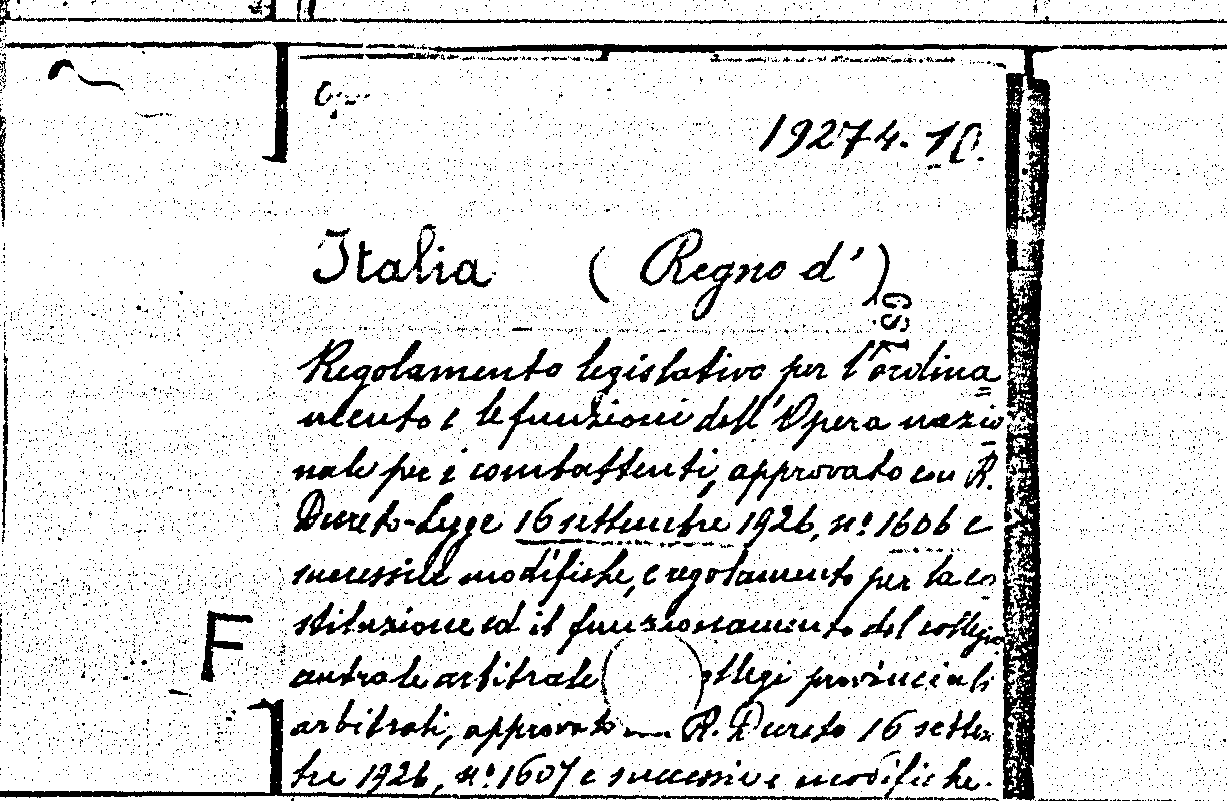 19274. 10.
Italia ( Regno d' )
Regolamento legislativo per l'ordina
mento e le funzioni dell'Opera nazio
nale per i combattenti, approvato con R.
Decreto-Legge 16 settembre 1926, nº 1606 e
successive modifiche, e regolamento per la co
stituzione ed il funzionamento del collegio
centrale arbitrale ollegi provinciali
arbitrali, approvato R. Decreto 16 settem
bre 1926, nº 1607 e successive modifiche.
F